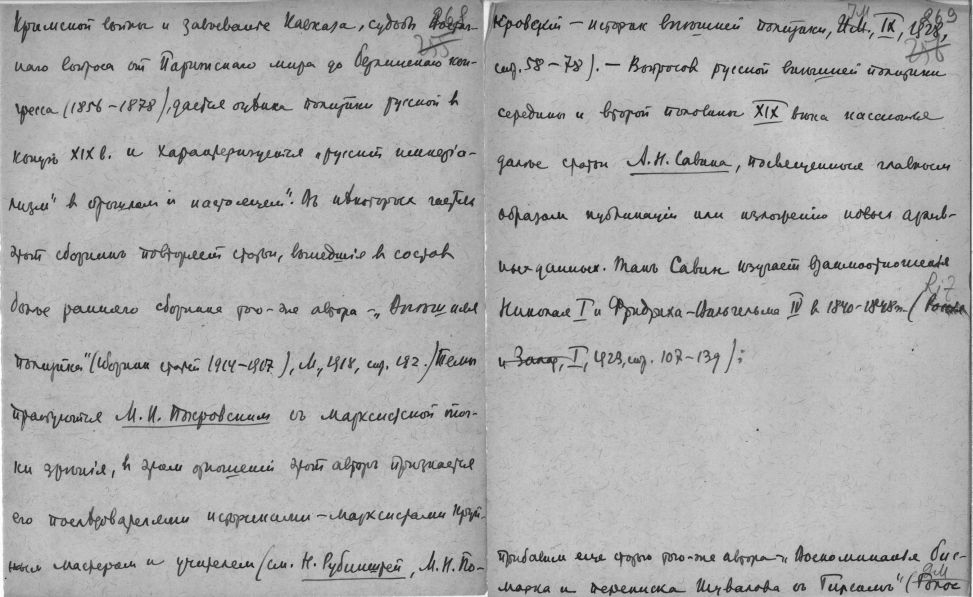 268
Крымской войны и завоевание Кавказа, судьбы Восточ-
255
наго вопроса от Парижскаго мира до берлинскаго кон-
гресса (1856–1878), дается оценка политики русской в
конце XIX в. и характеризуется „русский империа-
лизм" в прошлом и настоящем". Въ некоторых частях
этот сборникъ повторяет статьи, вышедшие в состав
более раннего сборника того-же автора – „Внешняя
политика" (сборник статей 1914–1917), М., 1918, стр. 192.) Темы
трактуются М. Н. Покровским съ марксистской точ-
ки зрѣнія, в этом отношении этот авторъ признается
его последователями историками-марксистами круп-
ным мастером и учителем (см. Н. Рубинштейн, М. Н. По-
269
кровский – историк внешней политики, И.М., IX, 1928,
256
стр. 58–78). – Вопросов русской внешней политики
середины и второй половины XIX века касаются
далее статьи А. Н. Савина, посвященные главным
образом публикации или изложению новых архив-
ных данных. Такъ Савин изучает взаимоотношения
Николая I и Фридриха-Вильгельма IV в 1840–1848 гг (
и Запад, I, 1923, стр. 107–139);
прибавим еще статью того-же автора – „Воспоминания Бис-
марка и переписка Шувалова съ Гирсамъ" (Голос